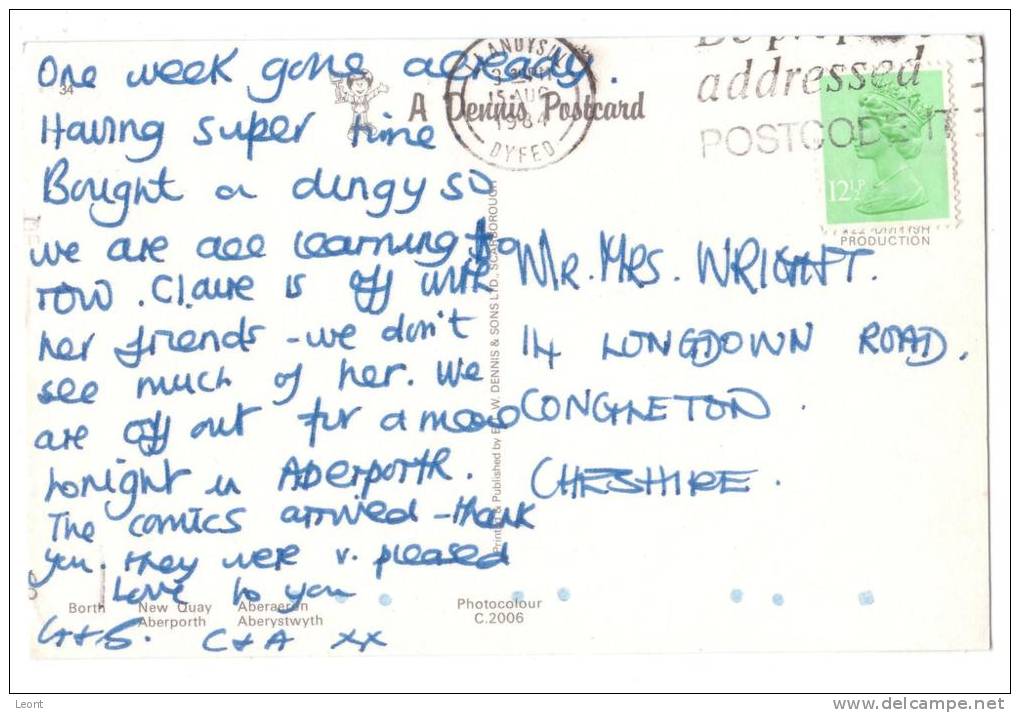 One week gone already.
34
Having super time
Bought a dingy so
we are all learning to
row. Claire is off with
her friends - we don't
see much of her. We
are off out for a meal
tonight in Aberporth.
The comics arrived - thank
you. they were v. pleased
Love to you
G+S. C+A xx
A Dennis Postcard
LLANDYSUL
15 AUG
1984
DYFED
addressed
POSTCODE IT
12½P
PRODUCTION
Mr. Mrs. WRIGHT.
14 LONGDOWN ROAD.
CONGLETON.
CHESHIRE.
Printed & Published by E.T.W. DENNIS & SONS LTD., SCARBOROUGH
Borth New Quay Aberaeron
Aberporth Aberystwyth
Photocolour
C.2006
Leont
www.delcampe.net